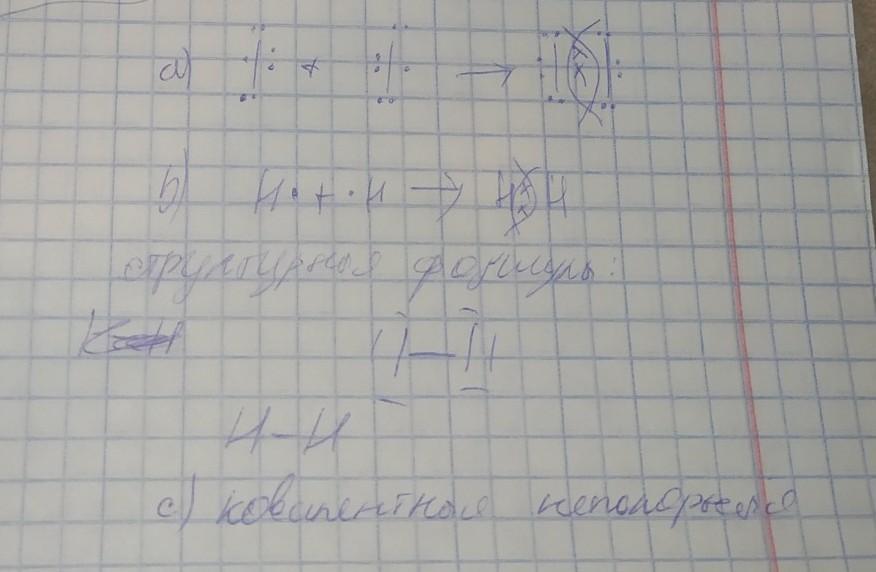 a) ·I: + :I· → :I:I:
b) H· + ·H → H:H
структурная формулы:
I—I
H–H
c) ковалентная неполярная